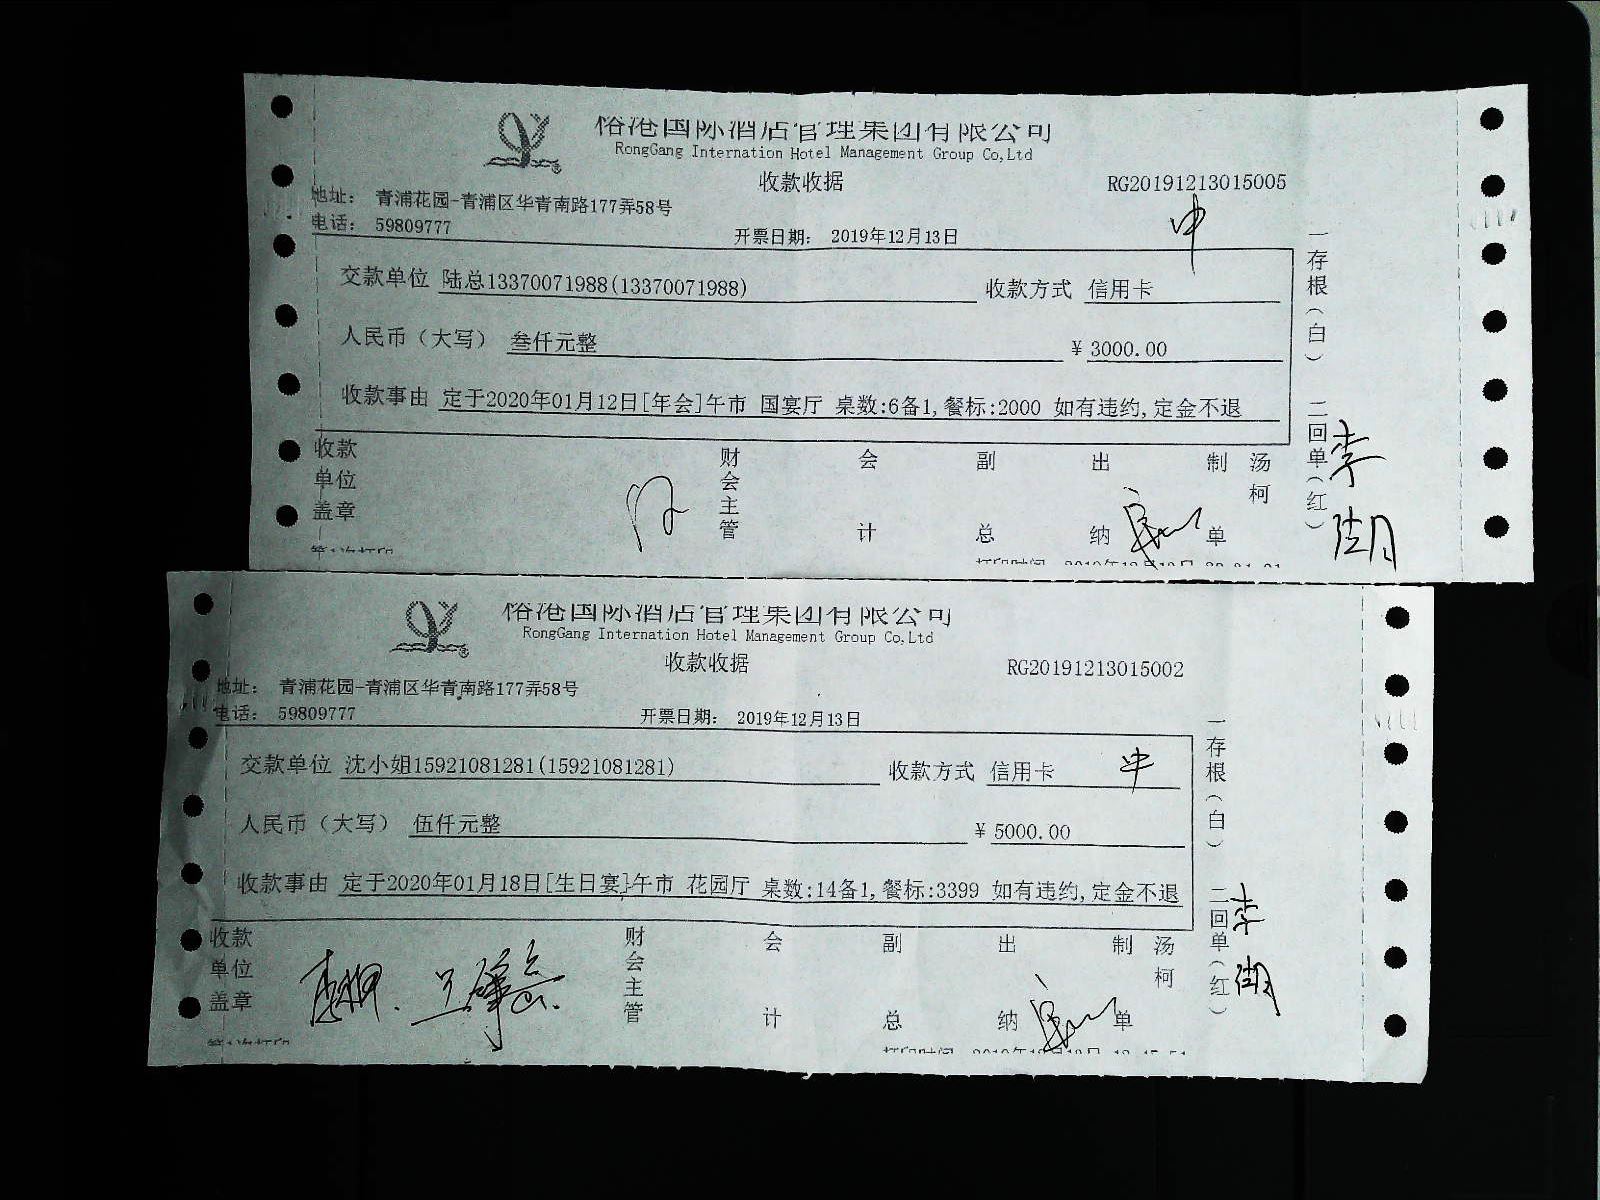 榕港国际酒店管理集团有限公司
RongGang Internation Hotel Management Group Co,Ltd
收款收据 RG20191213015005
地址: 青浦花园-青浦区华青南路177弄58号
电话: 59809777 开票日期: 2019年12月13日
交款单位 陆总13370071988(13370071988) 收款方式 信用卡
人民币（大写） 叁仟元整 ¥ 3000.00
收款事由 定于2020年01月12日[年会]午市 国宴厅 桌数:6备1,餐标:2000 如有违约,定金不退
收款单位盖章 财会主管 会计 副总 出纳 制单 汤柯
一存根（白） 二回单（红）
第1次打印
榕港国际酒店管理集团有限公司
RongGang Internation Hotel Management Group Co,Ltd
收款收据 RG20191213015002
地址: 青浦花园-青浦区华青南路177弄58号
电话: 59809777 开票日期: 2019年12月13日
交款单位 沈小姐15921081281(15921081281) 收款方式 信用卡
人民币（大写） 伍仟元整 ¥ 5000.00
收款事由 定于2020年01月18日[生日宴]午市 花园厅 桌数:14备1,餐标:3399 如有违约,定金不退
收款单位盖章 财会主管 会计 副总 出纳 制单 汤柯
一存根（白） 二回单（红）
第1次打印